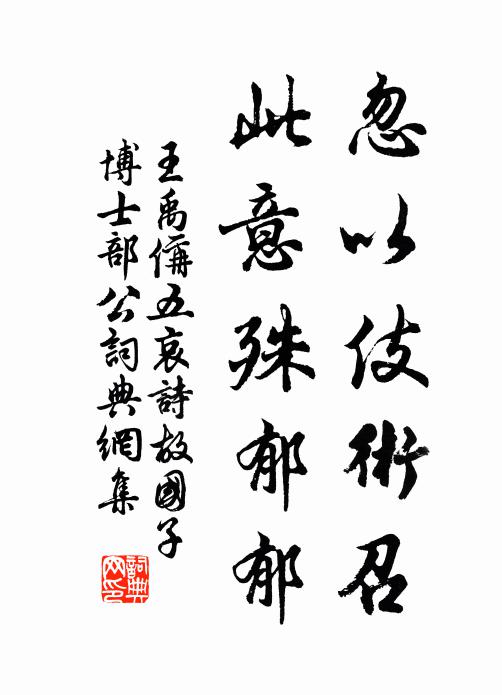 忽以伎術召
此意殊郁郁
王禹偁五哀詩故國子
博士部公詞典網集
詞典網印